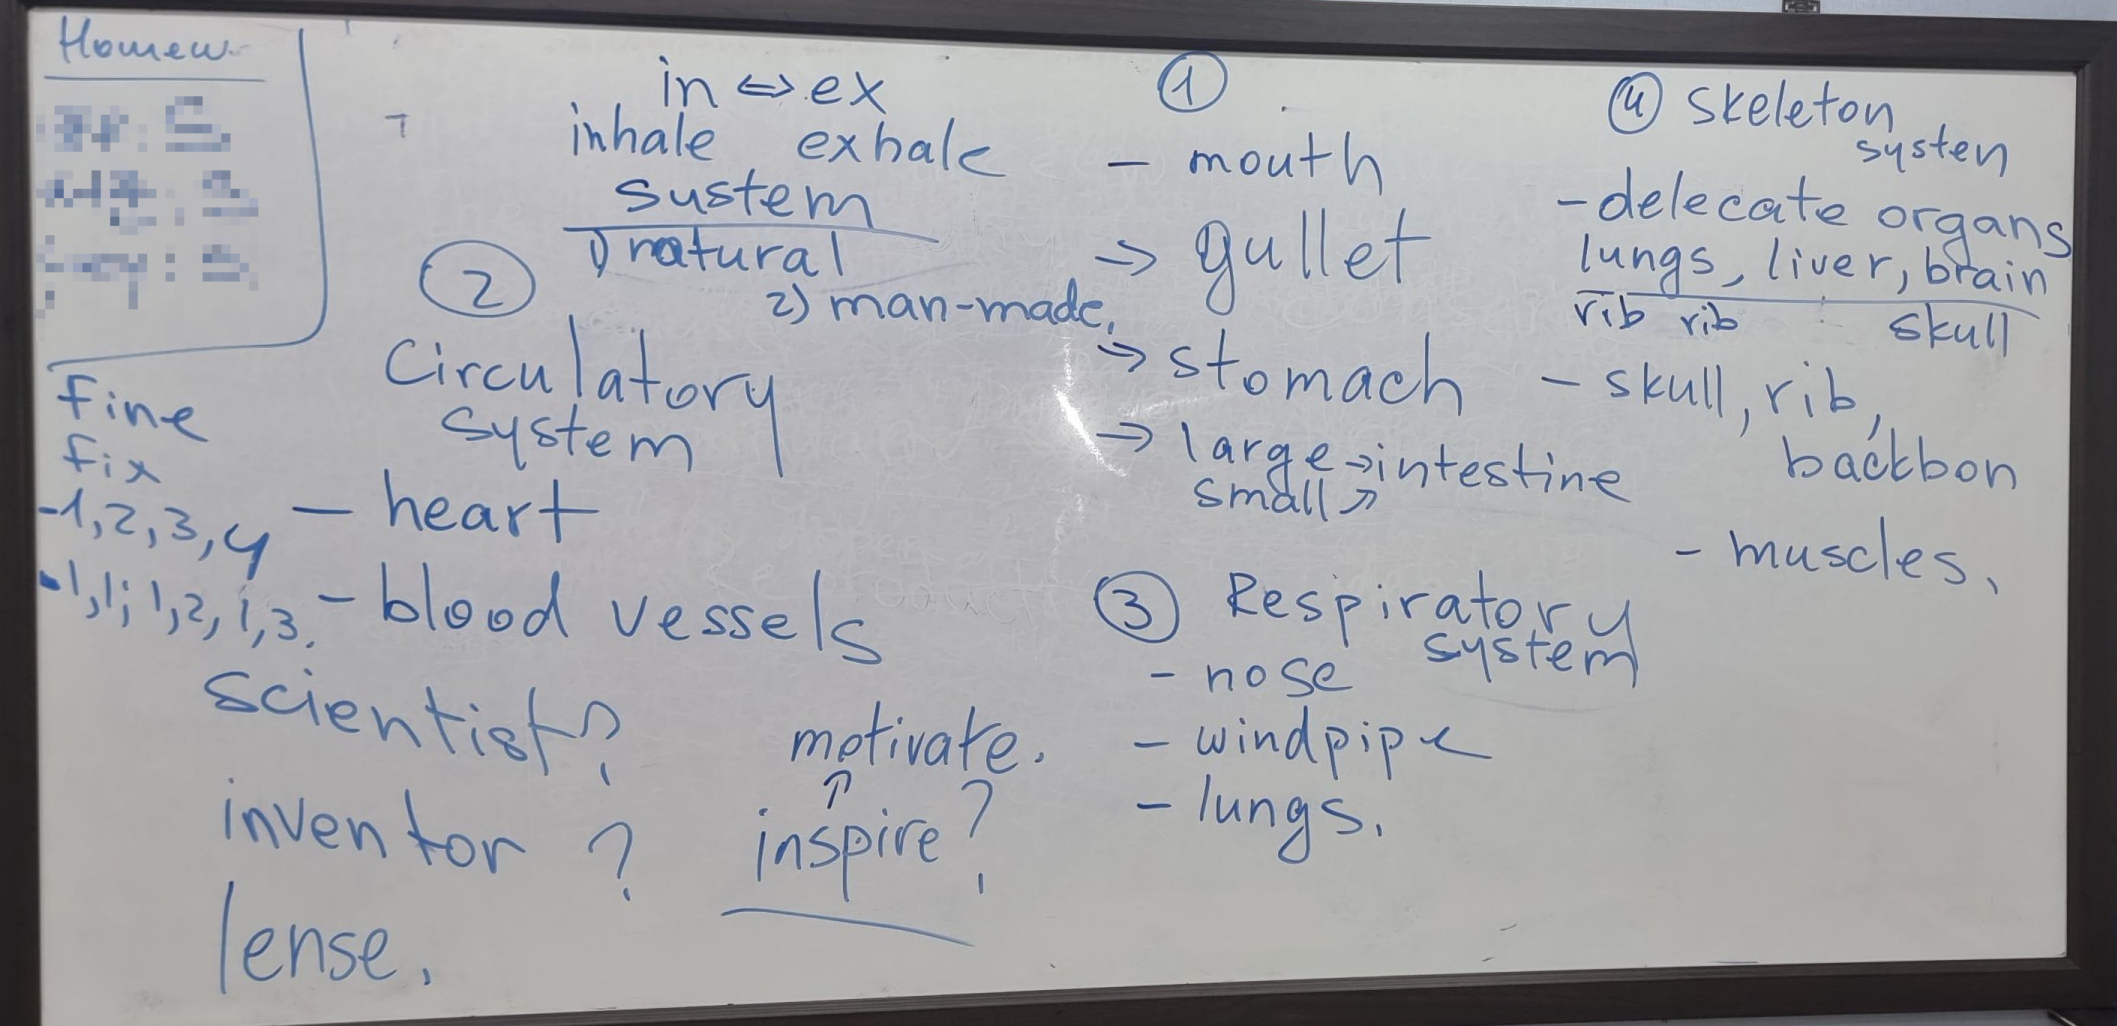 Homew.
Fine
Fix
-1,2,3,4
-1,1; 1,2, 1,3.
in ⇔ ex
inhale exhale
sustem
1) natural
2) man-made,
②
Circulatory
system
- heart
- blood vessels
scientist?
inventor ?
lense.
motivate.
↑
inspire?
①
- mouth
⇒ gullet
⇒ stomach
⇒ large → intestine
small ↗
③ Respiratory
system
- nose
- windpipe
- lungs.
④ Skeleton
systen
- delecate organs
lungs, liver, brain
rib rib skull
- skull, rib,
backbon
- muscles,